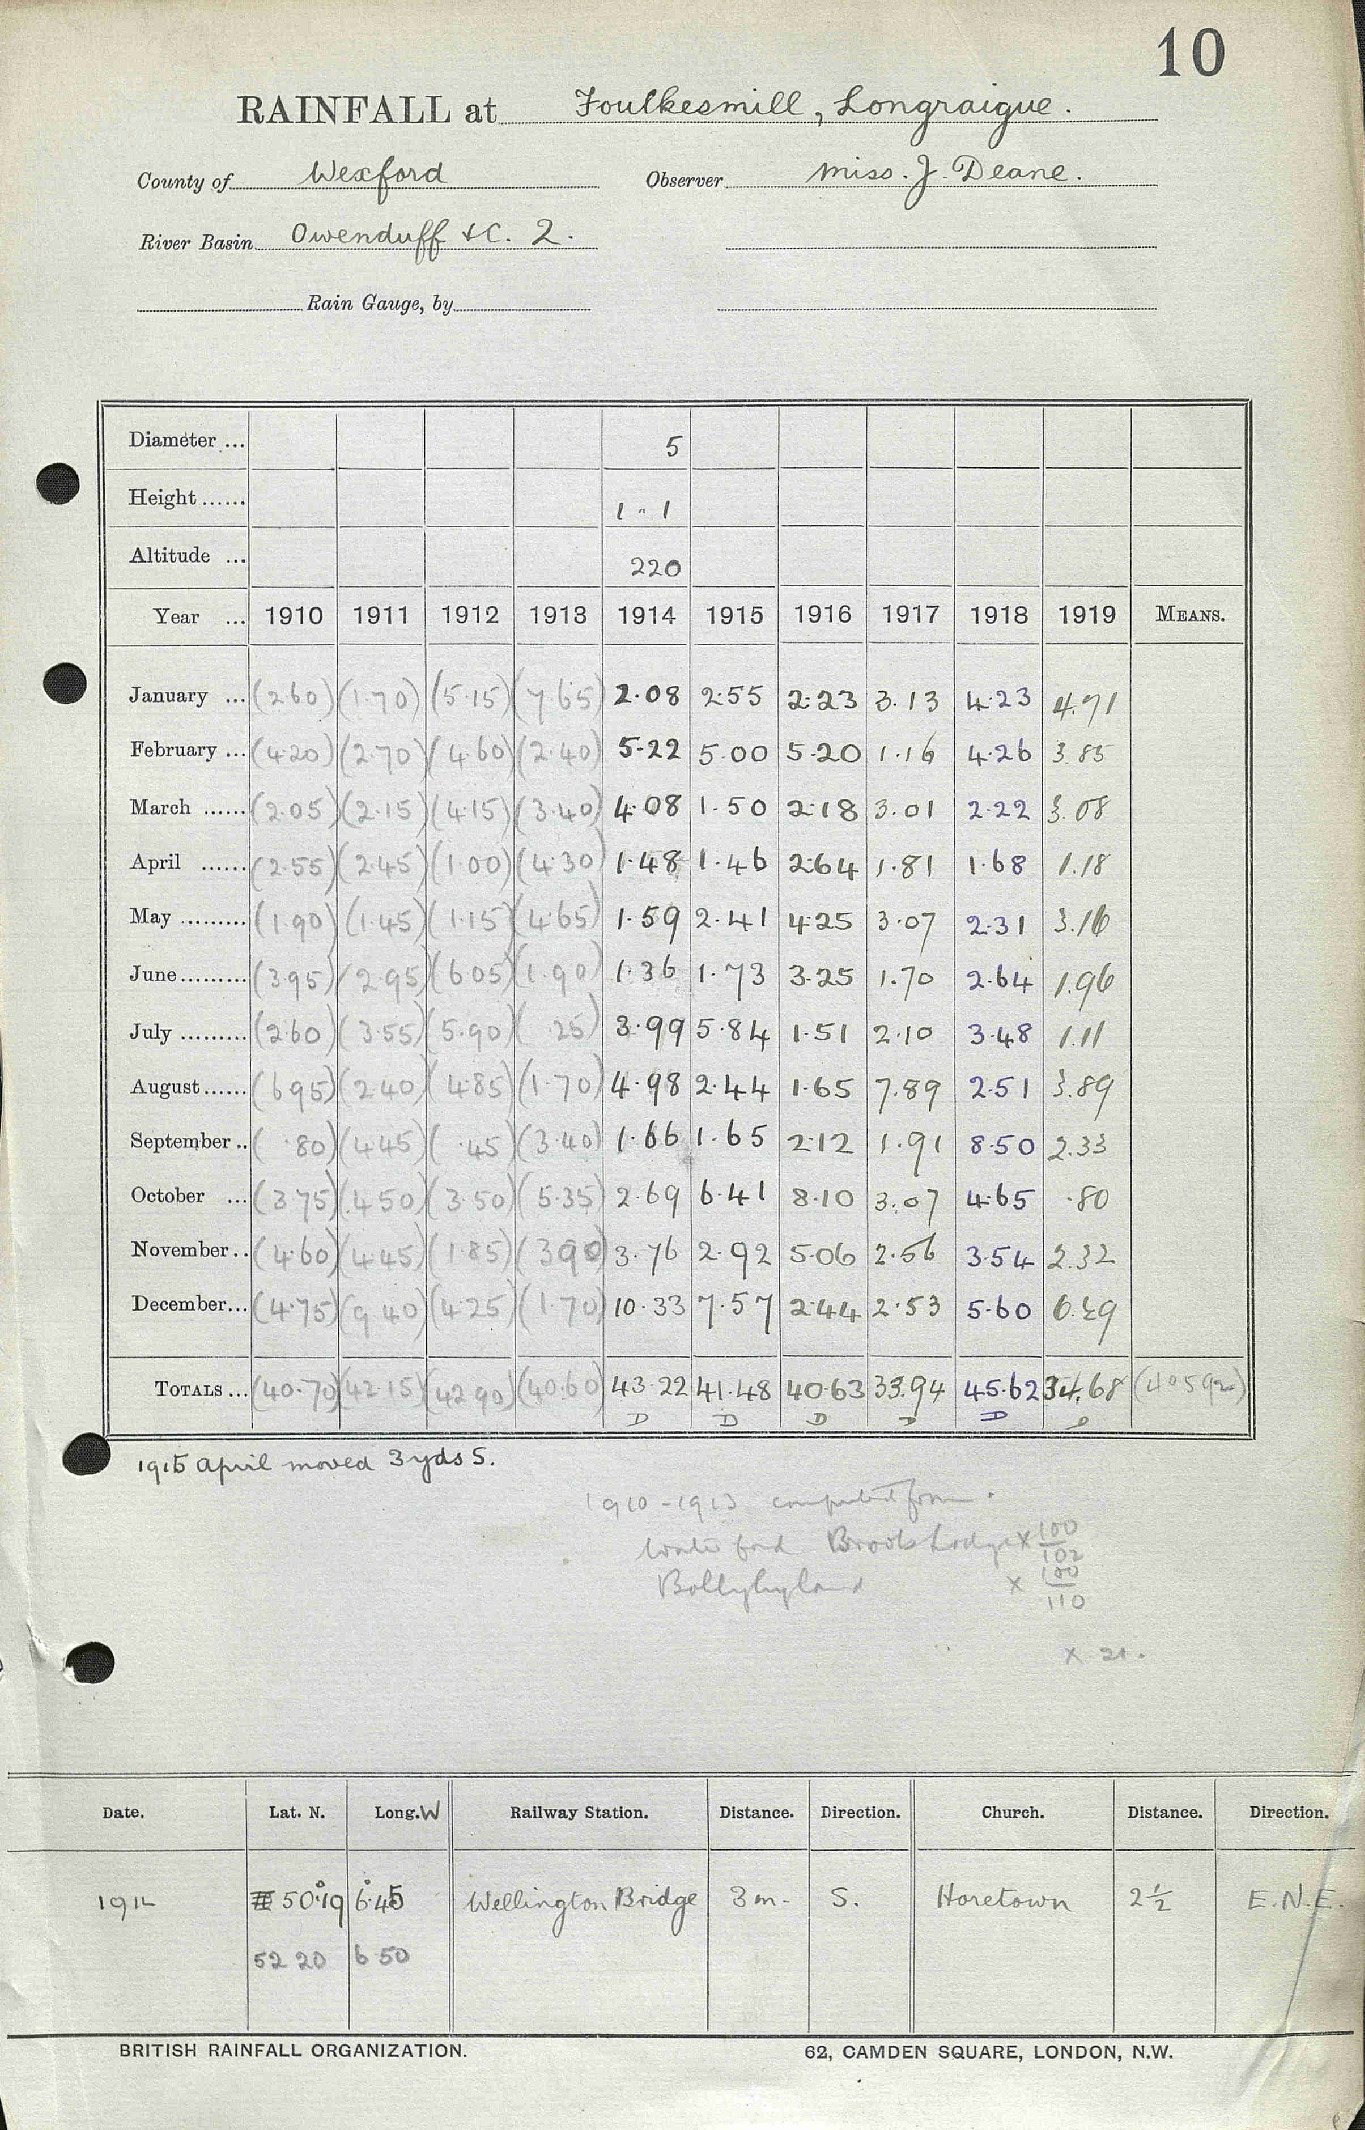 10
RAINFALL at Foulkesmill, Longraigue.
County of Wexford Observer Miss. J. Deane.
River Basin Owenduff &C. 2.
Rain Gauge, by
Diameter ... 5
Height ...... 1 " 1
Altitude ... 220
Year ... 1910 1911 1912 1913 1914 1915 1916 1917 1918 1919 MEANS.
January ... (2.60) (1.70) (5.15) (7.65) 2.08 2.55 2.23 3.13 4.23 4.71
February ... (4.20) (2.70) (4.60) (2.40) 5.22 5.00 5.20 1.16 4.26 3.85
March ...... (2.05) (2.15) (4.15) (3.40) 4.08 1.50 2.18 3.01 2.22 3.08
April ...... (2.55) (2.45) (1.00) (4.30) 1.48 1.46 2.64 1.81 1.68 1.18
May ......... (1.90) (1.45) (1.15) (4.65) 1.59 2.41 4.25 3.07 2.31 3.16
June ......... (3.95) (2.95) (6.05) (1.90) 1.36 1.73 3.25 1.70 2.64 1.96
July ......... (2.60) (3.55) (5.90) (.25) 3.99 5.84 1.51 2.10 3.48 1.11
August ...... (6.95) (2.40) (4.85) (1.70) 4.98 2.44 1.65 7.89 2.51 3.89
September .. (.80) (4.45) (.45) (3.40) 1.66 1.65 2.12 1.91 8.50 2.33
October ... (3.75) (4.50) (3.50) (5.35) 2.69 6.41 8.10 3.07 4.65 .80
November .. (4.60) (4.45) (1.85) (3.90) 3.76 2.92 5.06 2.56 3.54 2.32
December ... (4.75) (9.40) (4.25) (1.70) 10.33 7.57 2.44 2.53 5.60 6.29
TOTALS ... (40.70) (42.15) (42.90) (40.60) 43.22 41.48 40.63 33.94 45.62 34.68 (40592)
D D D D D D
1915 April moved 3 yds S.
1910-1913 computed from.
Waterford Brook Lodge x 100/102
Ballyhyland x 100/110
x 21.
Date. Lat. N. Long. W Railway Station. Distance. Direction. Church. Distance. Direction.
1914 50°19 6°45 Wellington Bridge 3 m. S. Horetown 2½ E.N.E.
52 20 6 50
BRITISH RAINFALL ORGANIZATION. 62, CAMDEN SQUARE, LONDON, N.W.